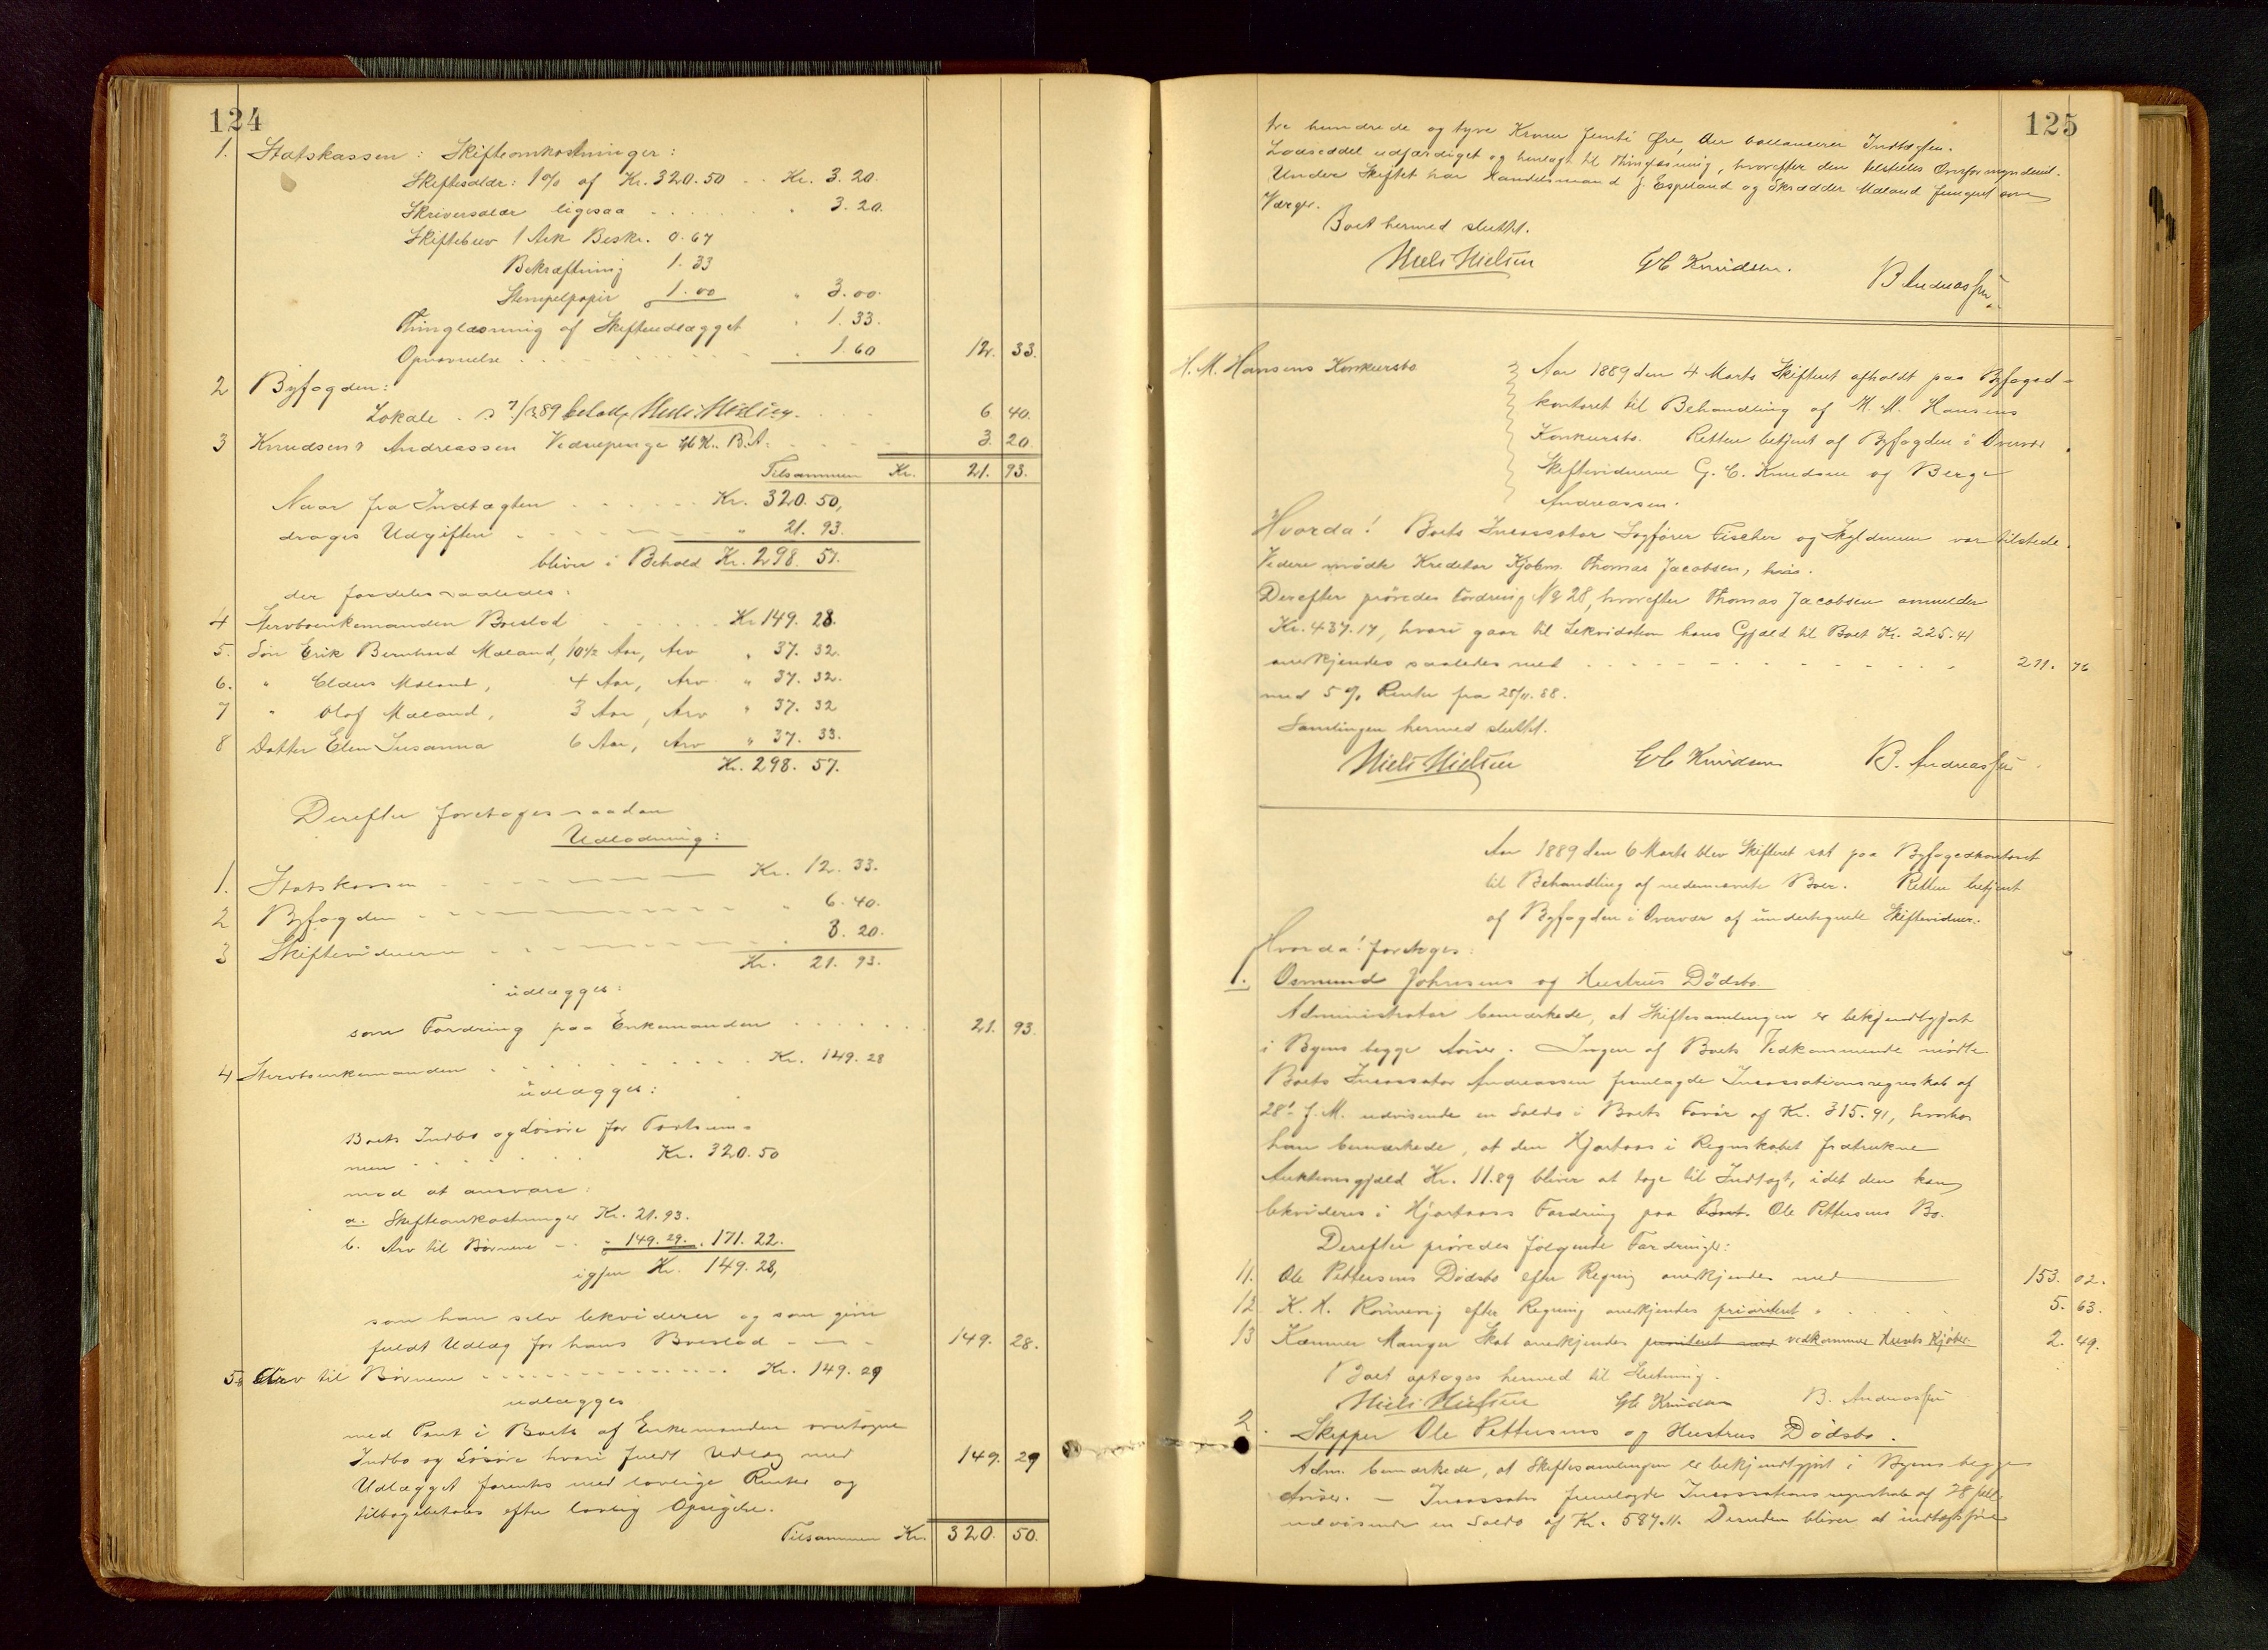 124
1. Statskassen: Skifteomkostninger:
Skiftesalær: 1% af Kr. 320.50 . . Kr. 3.20.
Skriversalær ligesaa . . . . . . " 3.20.
Skiftebrev 1 Ark Beskr. 0.67
Bekræftning 1.33
Stempelpapir 1.00 " 3.00.
Thinglæsning af Skifteudlægget " 1.33.
Opnævnelse . . . . . . . . . . . 1.60 12. 33.
2 Byfogden:
Lokale . 7/3 89 betalt, Niels Nielsen. . . . 6. 40.
3 Knudsen & Andreassen Vidnepenge GCK. B.A. . . . . 3. 20.
Tilsammen Kr. 21. 93.
Naar fra Indtægten . . . . . . Kr. 320.50,
drages Udgiften . . . . . " 21.93.
bliver i Behold Kr. 298.57.
der fordeles saaledes:
4 Stervboenkemanden Boeslod . . . . . Kr 149.28.
5. Søn Erik Bernhard Maland, 10½ Aar, Arv " 37.32.
6. " Elias Maland, 4 Aar, Arv " 37.32.
7 " Olaf Maland, 3 Aar, Arv " 37.32
8 Datter Elen Susanna 6 Aar, Arv " 37.33.
Kr. 298.57.
Derefter foretoges saadan
Udlodning:
1. Statskassen . . . . . Kr. 12.33.
2 Byfogden . . . . . " 6.40.
3 Skiftevidnerne . . . . . " 3.20.
Kr. 21.93.
udlægges:
som Fordring paa Enkemanden . . . . . . 21. 93.
4 Stervboenkemanden . . . . . . . Kr. 149.28
udlægges:
Boets Indbo og Løsøre for Taxtsum-
men . . . . . . Kr. 320.50
mod at ansvare:
a. Skifteomkostninger Kr. 21.93.
b. Arv til Børnene - . " 149.29. . 171.22.
igjen Kr. 149.28,
som han selv lekviderer og som giver
fuldt Udlæg for hans Boeslod - - - 149. 28.
5-8 Arv til Børnene . . . . . . . . Kr. 149.29
udlægges
med Pant i Boets af Enkemanden overtagne
Indbo og Løsøre hvori fuldt Udlæg med 149. 29
Udlægget forrentes med lovlige Renter og
tilbagebetales efter lovlig Opsigelse.
Tilsammen Kr. 320. 50.
125
tre hundrede og tyve Kroner femti Øre, der ballancerer Indtægten.
Lodseddel udfærdiget og henlagt til Thinglæsning, hvorefter den tilstilles Overformynderiet.
Under Skiftet har Handelsmand J. Espeland og Skrædder Maland fungert som
Værger.
Boet hermed sluttet.
Niels Nielsen GC Knudsen. B Andreassen
H. M. Hansens Konkursbo
Aar 1889 den 4 Marts Skifteret afholdt paa Byfoged-
kontoret til Behandling af H. M. Hansens
Konkursbo. Retten betjent af Byfogden i Overvær
Skiftevidnerne G. C. Knudsen og Berge
Andreassen.
Hvorda! Boets Incassator Sagfører Fischer og Skyldneren var tilstede.
Videre mødte Kreditor Kjøbm. Thomas Jacobsen,
Derefter prøvedes Fordring No 28, hvorefter Thomas Jacobsen anmelder
Kr. 437.17, hvori gaar til Lekvidation hans Gjæld til Boet Kr. 225.41
anerkjendes saaledes med . . . . . . . . . . 211. 76
med 5% Renter fra 28/11.88.
Samlingen hermed sluttet.
Niels Nielsen GC Knudsen B. Andreassen
Aar 1889 den 6 Marts blev Skifteret sat paa Byfogedkontoret
til Behandling af nedennævnte Boer. Retten betjent
af Byfogden i Overvær af undertegnede Skiftevidner.
Hvorda! foretoges:
1. Osmund Johnsens og Hustrus Dödsbo.
Administrator bemærkede, at Skiftesamlingen er bekjendtgjort
i Byens begge Aviser. Ingen af Boets Vedkommende mødte.
Boets Incassator Andreassen fremlagde Incassationsregnskab af
28' f. M. udvisende en Saldo i Boets Favør af Kr. 315.91, hvorhos
han bemærkede, at den Hjortaas i Regnskabet fratrukne
Auktionsgjæld Kr. 11.89 bliver at tage til Indtægt, idet den kan
lekvideres i Hjortaas's Fordring paa Boet Ole Pettersens Bo.
Derefter prøvedes følgende Fordringer:
11. Ole Pettersens Dödsbo efter Regning anerkjendes med 153. 02.
12. K. A. Rönnevig efter Regning anerkjendes prioriteret " . . . . 5. 63.
13 Kæmner Manger Skat anerkjendes prioriteret med vedkommer Husets Kjöber 2. 49.
Boet optages hermed til Slutning.
Niels Nielsen GC Knudsen B. Andreassen
2. Skipper Ole Pettersens og Hustrus Dödsbo.
Adm. bemærkede, at Skiftesamlingen er bekjendtgjort i Byens begge
Aviser. - Incassator fremlagde Incassationsregnskab af 28 f.M.
udvisende en Saldo af Kr. 587.11. Desuden bliver at indtægtsføre